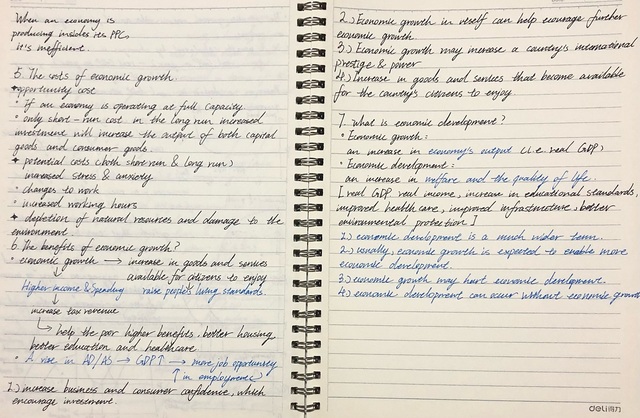 When an economy is
producing insides its PPC,
it's inefficient.
5. The costs of economic growth.
opportunity cost
• If an economy is operating at full capacity
• only short-run cost in the long run increased
investment will increase the output of both capital
goods and consumer goods.
potential costs (both short run & long run)
increased stress & anxiety
• changes to work
• increased working hours
depletion of natural resources and damage to the
environment.
6. The benefits of economic growth?
• economic growth → increase in goods and services
available for citizens to enjoy
Higher income & Spending raise people's living standards.
increase tax revenue
help the poor higher benefits, better housing,
better education and healthcare
• A rise in AD/AS → GDP↑ → more job opportunity
↑ in employment
1.) increase business and consumer confidence, which
encourage investment.
2.) Economic growth in itself can help ecourage further
economic growth
3.) Economic growth may increase a country's international
prestige & power
4.) Increase in goods and services that become available
for the country's citizens to enjoy
7. What is economic development?
• Economic growth:
an increase in economy's output (i.e. real GDP)
• Economic development:
an increase in welfare and the quality of life.
[real GDP, real income, increase in educational standards,
improved health care, improved infrastructure, better
environmental protection]
1.) economic development is a much wider term.
2.) usually, economic growth is expected to enable more
economic development.
3.) economic growth may hurt economic development.
4.) economic development can occur without economic growth
deli得力